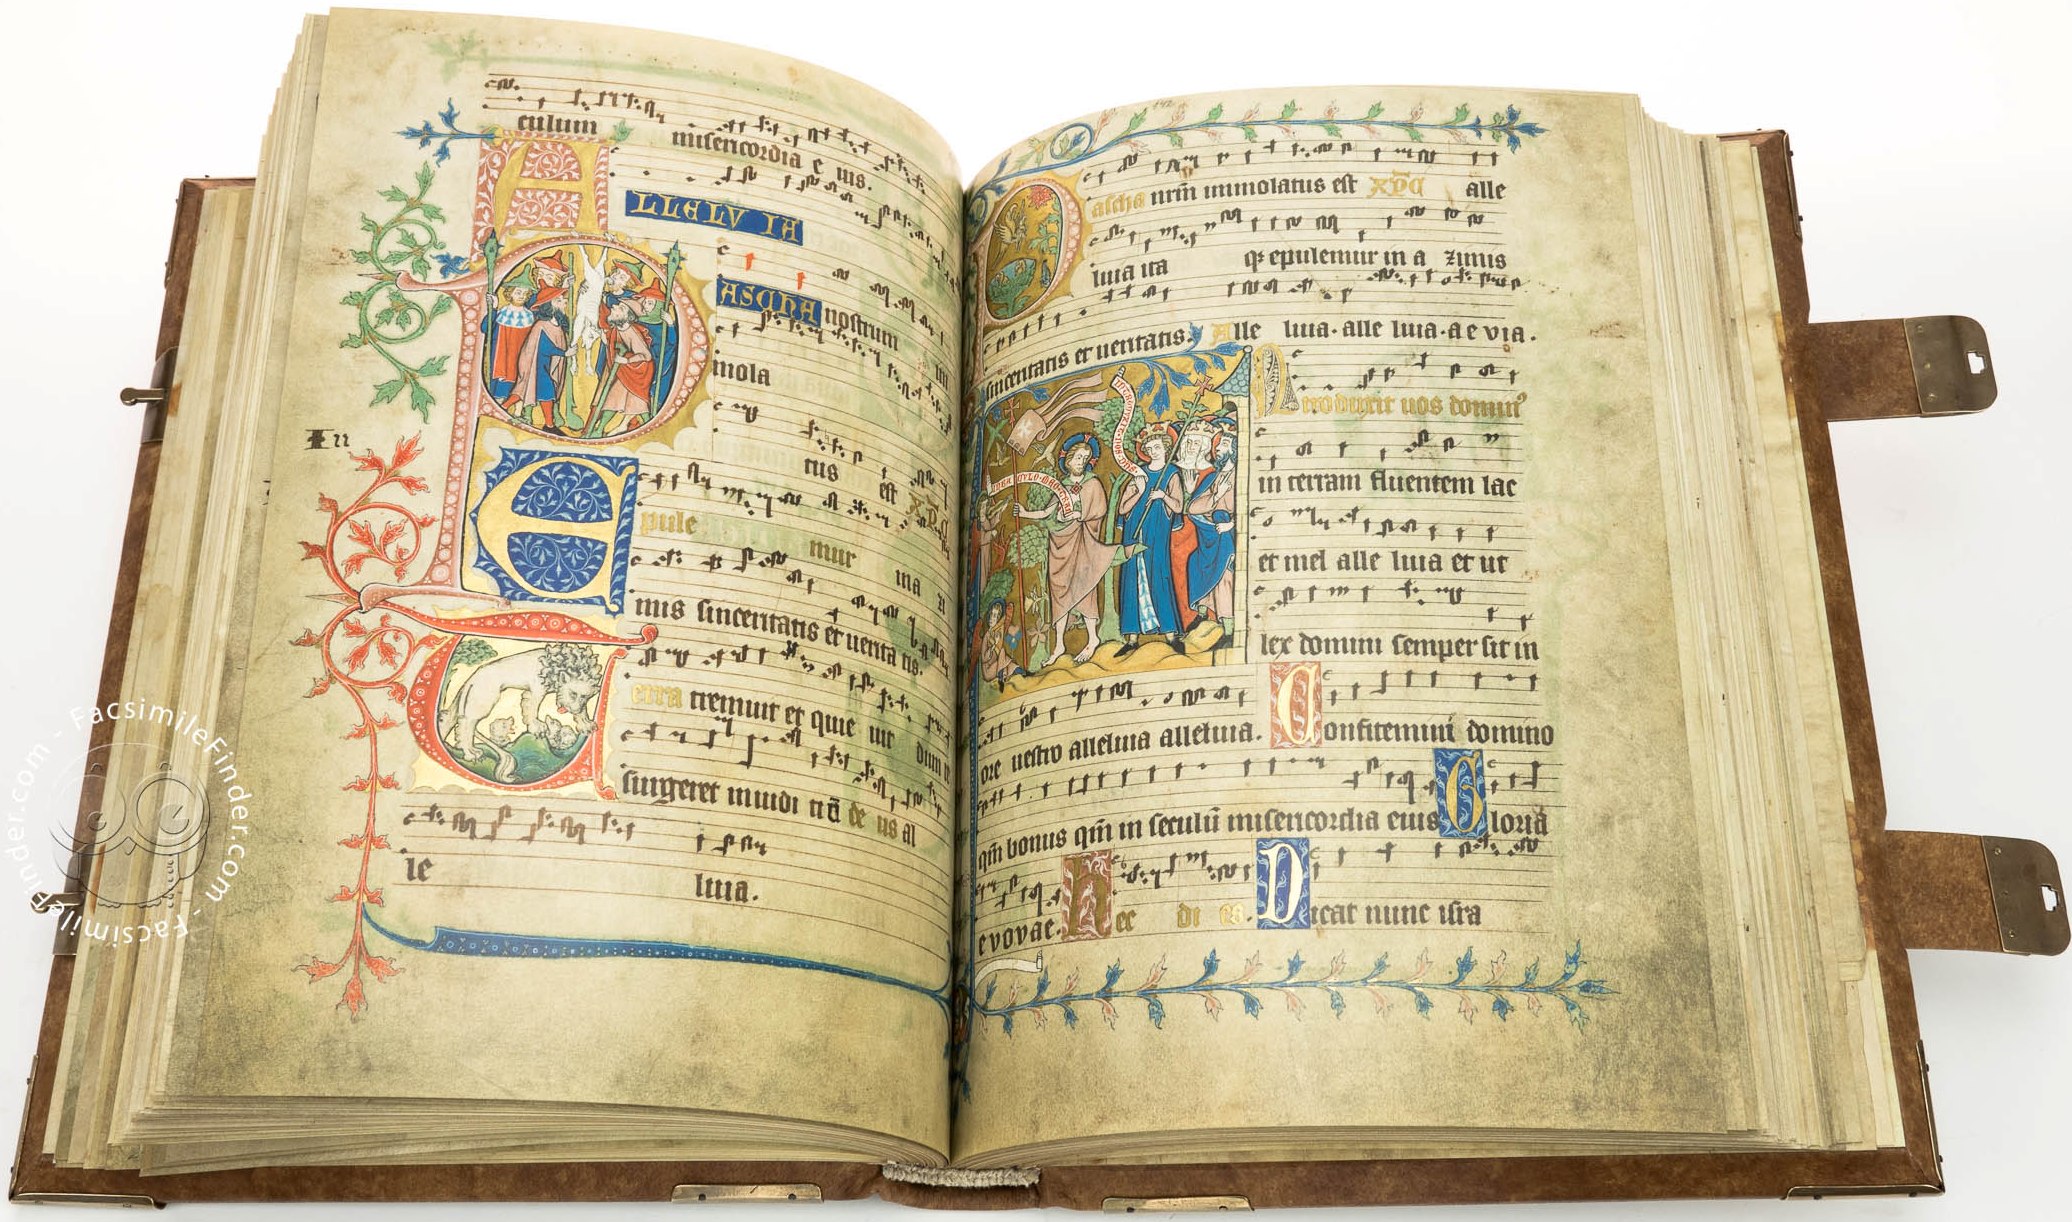 culum misericordia e ius.
ALLELVIA
PASCHA nostrum im
mola
tus est xp̄c
Epule mur in a zi
mis sinceritatis et verita tis.
Terra tremuit et quie uit dum re
surgeret in iudi tiū de us al
le luia.
Pascha nrm̄ immolatus est xp̄c alle
luia ita qȝ epulemur in a zimis
sinceritatis et ueritatis. Alle luia. alle luia. a e v i a.
Introduxit uos dominus
in terram fluentem lac
et mel alle luia et ut
lex domini semper sit in
ore uestro alleluia alleluia. Confitemini domino
qm̄ bonus qm̄ in seculū misericordia eius Gloria
evovae. Hec di es. Dicat nunc isra
FacsimileFinder.com - FacsimileFinder.com - FacsimileFinder.com